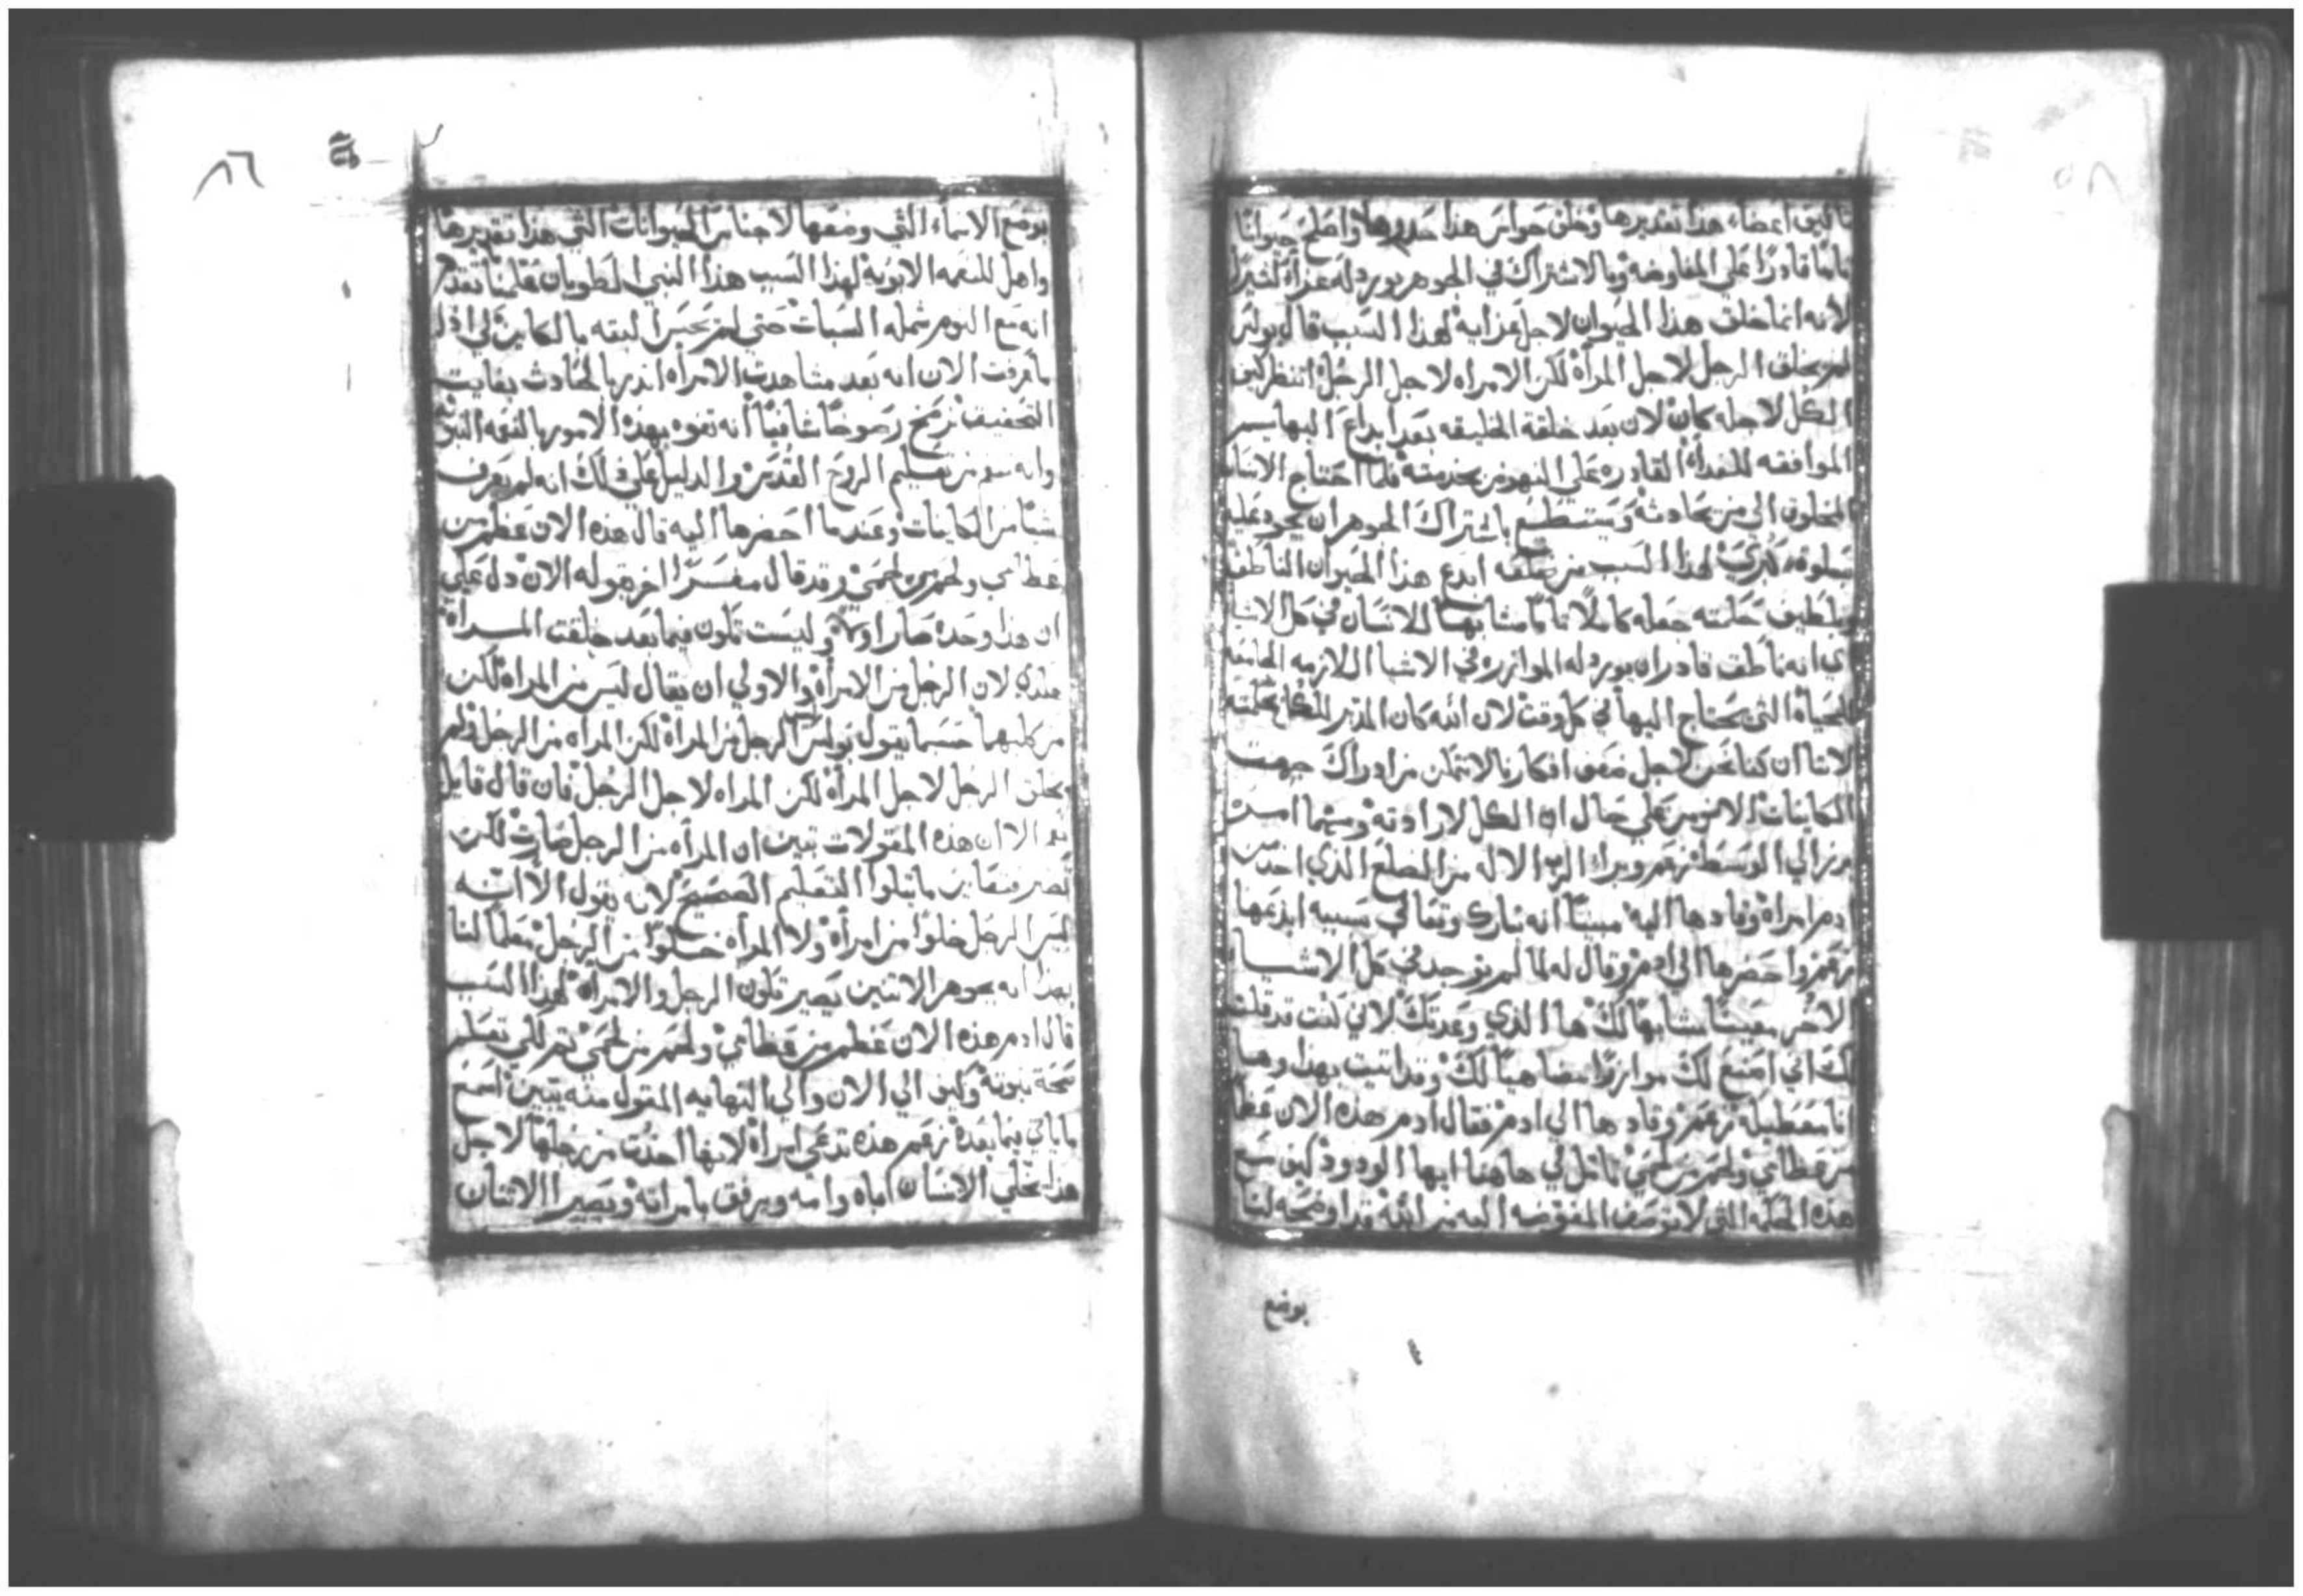 تاليف اعضاء هذا تقديرها وخلق حواس هذا قدرها واصلح حيوانًا
تامًا قادرًا علي المفاوضه وبالاشتراك في الجوهر يورد له عزاءً كثيرًا
لانه انما خلق هذا الحيوان لاجل عزايه لهذا السبب قال بولس
لم يخلق الرجل لاجل المرأة لكن الامراه لاجل الرجل انتظر كيف
الكل لاجله كان لان بعد خلقة الخليقه بعد ابداع البهايم
الموافقه للغداء القادره علي النهوض بخدمته فلما احتاج الانسان
المخلوق الي من يحادثه ويستطيع باشتراك الجوهر ان يجود عليه
بسلوة كبري لهذا السبب من ضلعه ابدع هذا الحيوان الناطق
وبلطيف حكمته جعله كاملًا تامًا مشابهًا للانسان في كل الاشيا
اي انه ناطق قادر ان يورد له الموازره في الاشيا اللازمه الجامعه
للحياة التي يحتاج اليها في كل وقت لان الله كان المدبر للكل بحكمته
لاننا ان كنا نحن لاجل ضعف افكارنا لا نتمكن من ادراك جهت
الكاينات الا نومن علي حال ان الكل لارادته ومهما امر
برز الي الوسط زعم وبرا الرب الاله من الضلع الذي اخذ من
ادم امراة وقادها اليه مبينًا انه تبارك وتعالي بسببه ابدعها
زعم واحضرها الي ادم وقال له لما لم يوجد في كل الاشيا
الاخر معينًا مشابهًا لك ها الذي وعدتك لاني كنت قد قلت
لك اني اصنع لك موازرًا مضاهيًا لك وقد اتيت بهذا وها
انا معطيكه زعم وقادها الي ادم فقال ادم هذه الان عظم
من عظامي ولحم من لحمي تامل لي هاهنا ايها الودود كيف مع
هذه الحكمه التي لا توصف المفوضه اليه من الله قد اوضحه لنا
بوضع
٨٦
بوضع الاسماء التي وضعها لاجناس الحيوانات التي هذا تقديرها
واهل للنعمه الابويه لهذا السبب هذا النبي الطوبان علمنا تقدم
انه مع النوم شمله السبات حتي لم يحس البته بالكاين لكي اذا
ما عرفت الان انه بعد مشاهدت الامراه انذر بالحادث بغايت
التحقيق ترسخ رسوخًا شافيًا انه تفوه بهذه الامور بالقوه النبويه
وانه من تعليم الروح القدس والدليل علي ذلك انه لم يعرف
شيًا من الكاينات وعندما احضرها اليه قال هذه الان عظم من
عظامي ولحم من لحمي وقد قال مفسرًا اخر بقوله الان دل علي
ان هذا وحده صار اولًا وليست تكون فيما بعد خلقت المرأة
هكذي لان الرجل من الامرأة والاولي ان يقال ليس من المراة لكن
من كليهما حسبما يقول بولس ليس الرجل من المراة لكن المراه من الرجل ولم
يخلق الرجل لاجل المرأة لكن المراه لاجل الرجل فان قال قايل
نعم الا ان هذه المقولات تبين ان المرأه من الرجل صارت لكن
تصبر فتعاين ما يتلوا التعليم الصحيح لانه يقول الا انه
ليس الرجل خلوًا من امرأة ولا المرأه خلوًا من الرجل معلمًا لنا
بهذا انه بجوهر الاتنين يصير تكون الرجل والامراة لهذا السبب
قال ادم هذه الان عظم من عظامي ولحم من لحمي ثم لكي تعلم
صحة نبوته وكيف الي الان والي النهايه المقول منه يتبين اسمع
ما ياتي فيما بعده زعم هذه تدعي امراة لانها اخذت من رجلها لاجل
هذا يخلي الانسان اباه وامه ويرفق بامراته ويصير الاتنان